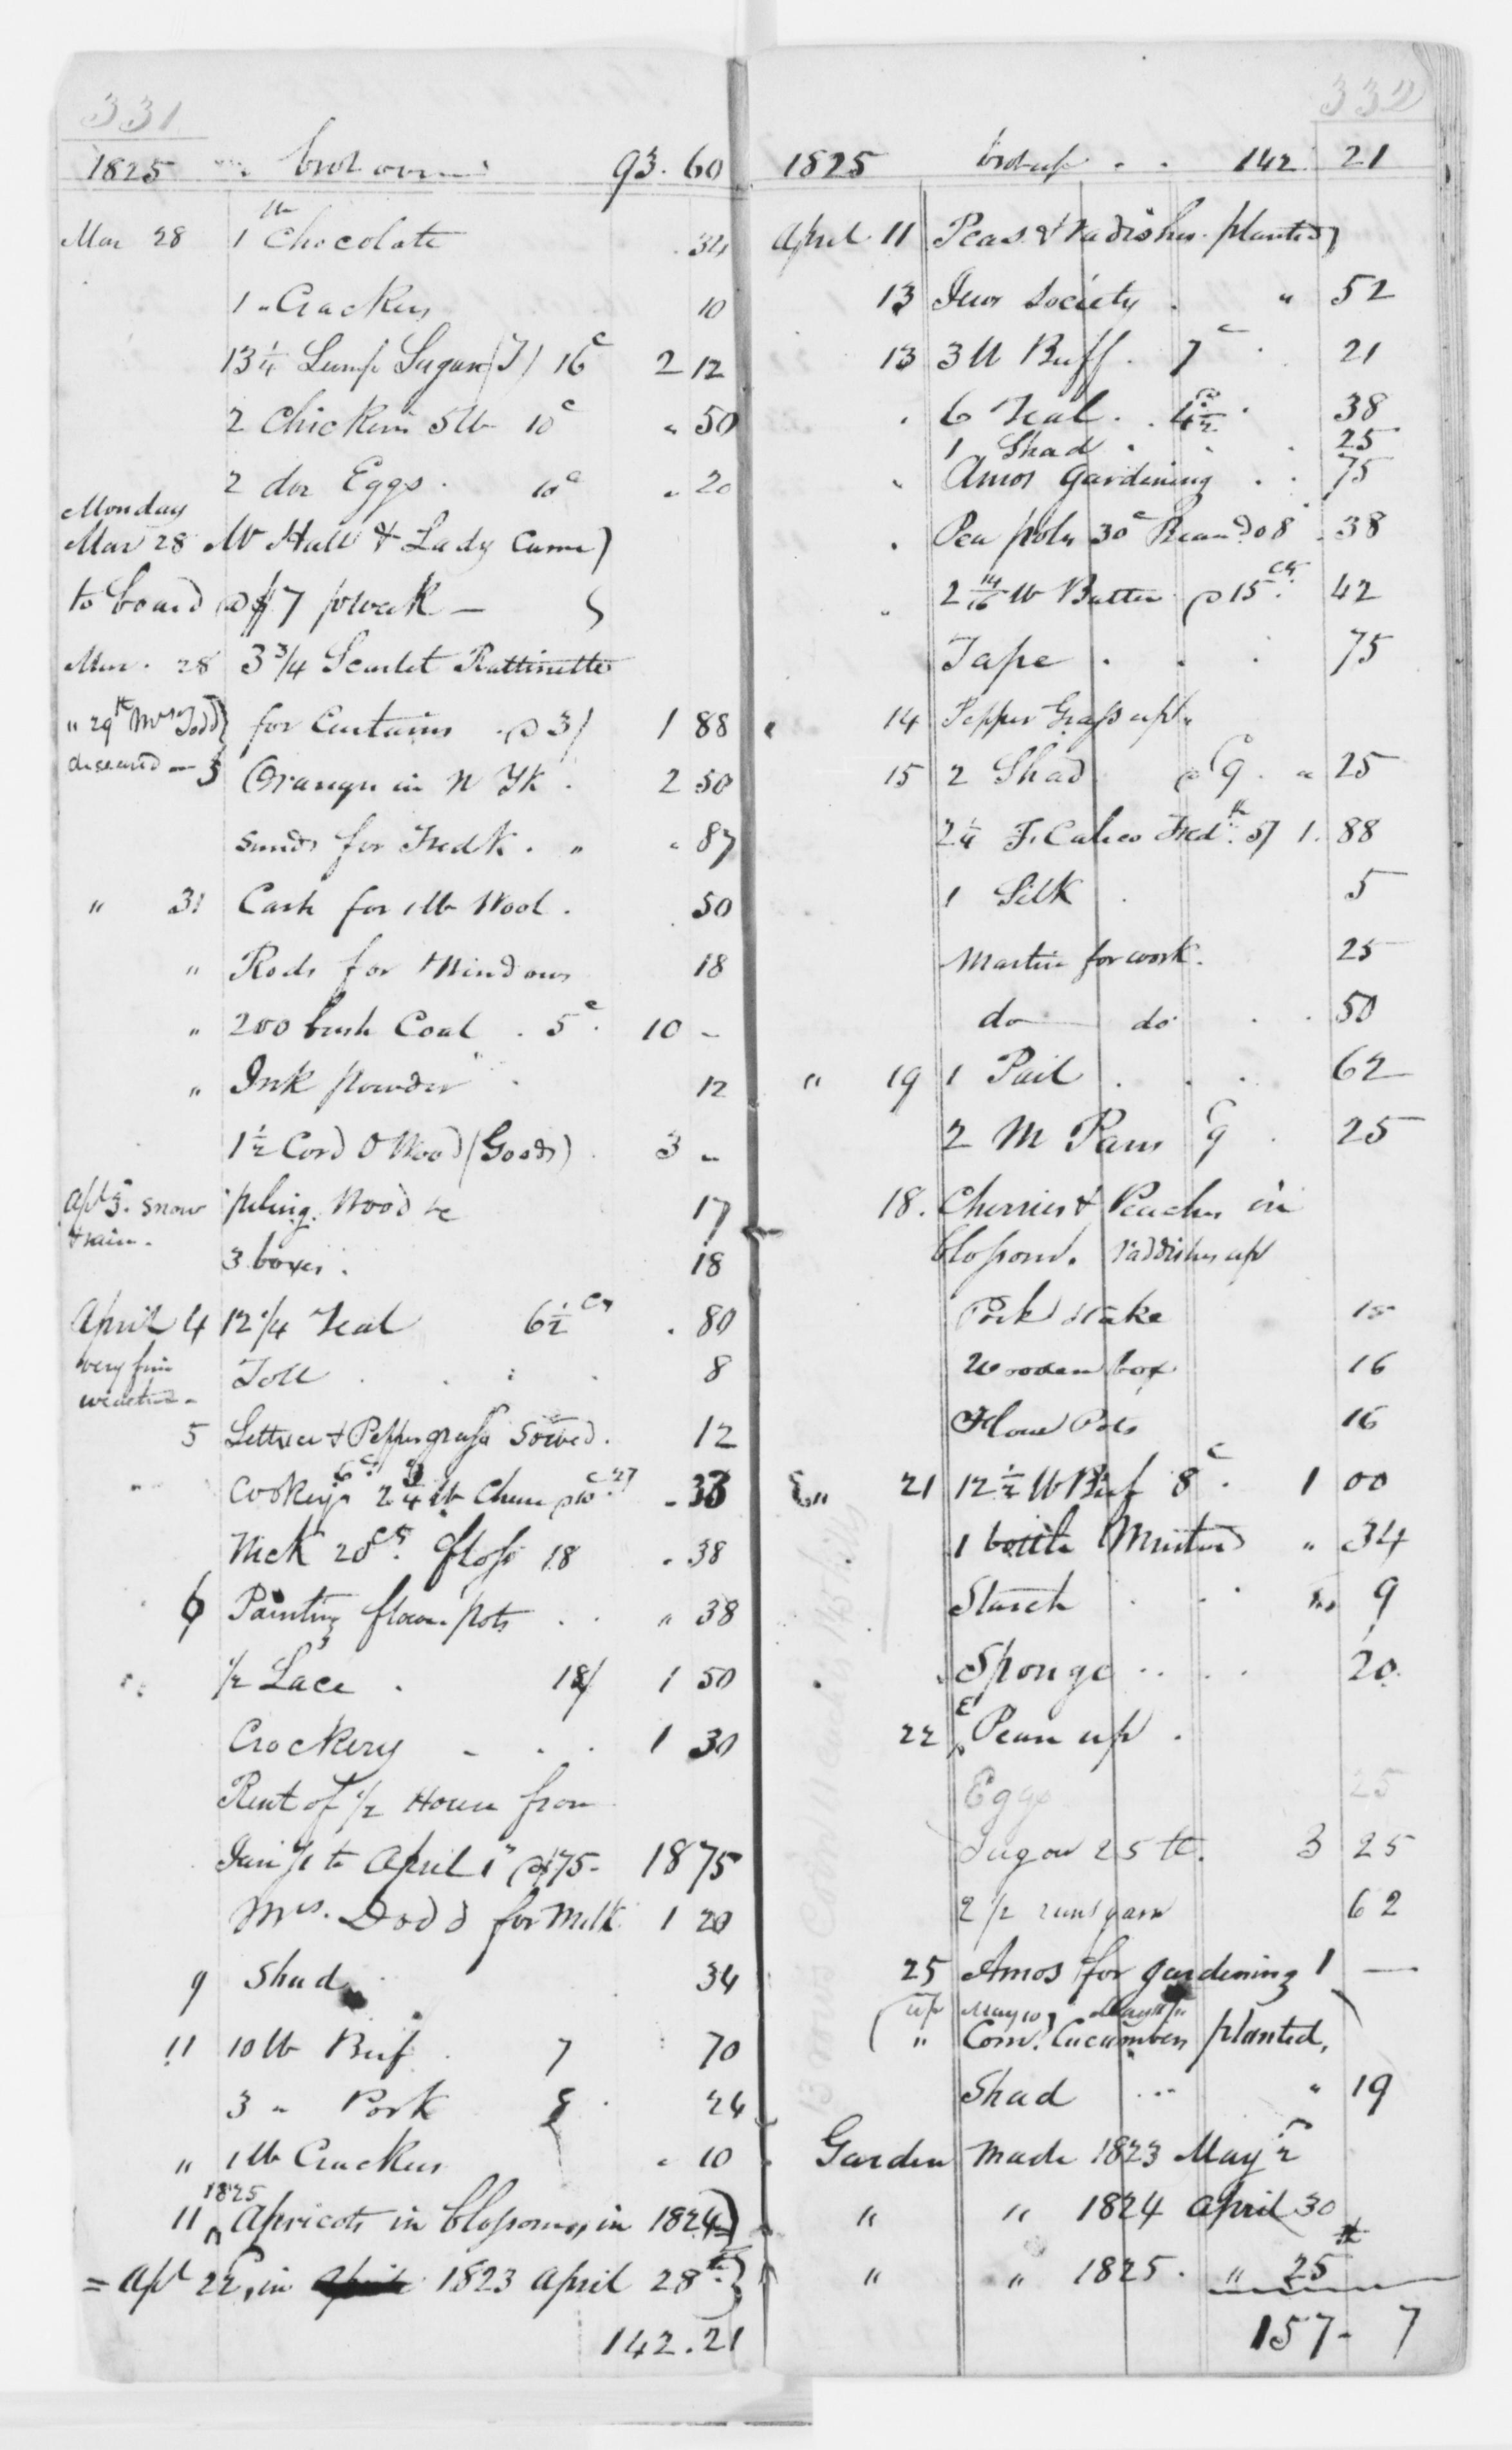 331
1825 " brot over 93.60
Mar 28 1 lb Chocolate .34
1 " Crackers 10
13 1/4 Lump Sugar (T) 16c 2 12
2 Chickens 5 lb 10c " 50
2 doz Eggs . 10c " 20
Monday
Mar 28 Mr Hall & Lady came )
to board @ $7 pr week — )
Mar. 28 3 3/4 Scarlet Rattinette
" 29th Mrs Todd } for Curtains @ 3/ 1 88
deceased — } Oranges in N Yk . 2 50
sunds for Fredk . " " 87
" 31 Cash for 1 lb Wool . 50
" Rods for Windows 18
" 200 bush Coal . 5c . 10 -
" Ink powder . 12
1 1/2 Cord O Wood (Goods) . 3 -
Apl 3. snow piling Wood &c 17
& rain.
3 boxes . 18
April 4 12 1/4 Veal 6 1/2 cts . 80
very fine Toll . . : . 8
weather -
5 Lettuce & Peppergrass sowed . 12
" Cookeys 6c. 2 3/4 lb Cheese @ 10c 27 - 33
Nick 20cts. floss 18 " 38
6 Painting flower pots . . " 38
" 1/2 Lace . 18/ 1 50
Crockery - . . 1 30
Rent of 1/2 House from
Jany 1 to April 1st @ $75 - 18 75
Mrs. Dodd for Milk 1 20
9 Shad . 34
11 10 lb Beef . 7 : 70
3 " Pork 8 . 24
" 1 lb Crackers " 10
1825
11 ^ Apricots in blossom, in 1824 )
= Apl 22, in 1823 April 28th. }
142.21
332
1825 brot up . . 142 21
April 11 Peas & Radishes planted
13 Juvr Society . " 52
13 3 lb Beef . 7c . 21
. 6 Veal . . 4 1/2 . 38
1 Shad . . . 25
" Amos gardening . . 75
. Pea poles 30c Bean do 8 . 38
" 2 14/16 lb Butter @ 15 cts. 42
Tape . . . 75
" 14 Pepper Grass up "
15 2 Shad @ 9 . " 25
2 1/4 F. Calico Fredk. 5/ 1. 88
1 Silk . 5
Martin for work . 25
do do . . 50
" 19 1 Pail . . . 62
2 M Pans 9 . 25
18. Cherries & Peaches in
blossom. raddishes up
Pork stake
Wooden box 16
Flour Pots 16
" 21 12 1/2 lb Beef 8c . 1 00
1 bottle Mustard " 34
Starch . . " 9
. Sponge .. . . 20.
22 Pears up .
Eggs 25
Sugar 25 lb. 3 25
2 1/2 runs yarn 62
25 Amos for gardening 1 —
( up May 10, )
" Corn. Cucumbers planted,
Shad ... " 19
Garden made 1823 May 2
" " 1824 April 30
" " 1825 . " 25th
157 - 7